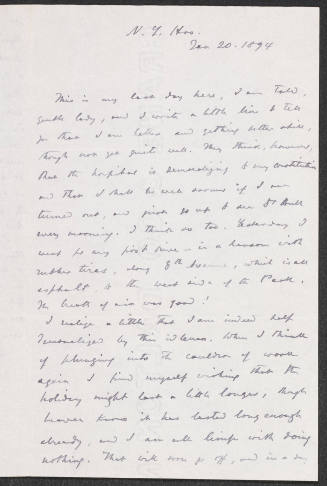 N. Y. Hos.
Jan 20. 1894
This is my last day here, I am told,
gentle lady, and I write a little line to tell
you that I am better and getting better still,
though not yet quite well. They think, however,
that the hospital is demoralizing to my constitution
and that I shall be well sooner if I am
turned out, and just go up to see Dr Bull
every morning. I think so too. Yesterday I
went for my first drive - in a hansom with
rubber tires, along 8th Avenue, which is all
asphalt, to the west side of the Park.
The breath of air was good!
I realize a little that I am indeed half
demoralized by this idleness. When I think
of plunging into the cauldron of work
again I find myself wishing that the
holiday might last a little longer, though
heaven knows it has lasted long enough
already, and I am all limp with doing
nothing. That will wear off, and in a day